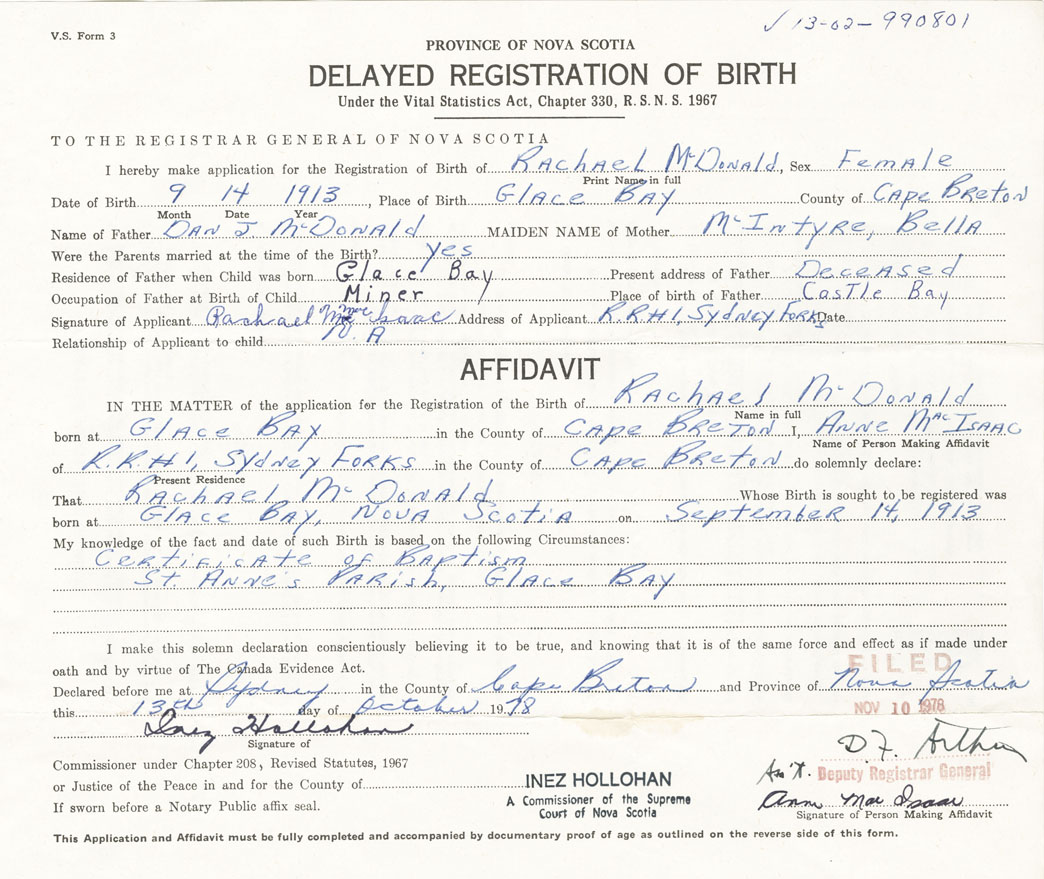 ✓ 13-02-990801
V.S. Form 3
PROVINCE OF NOVA SCOTIA
DELAYED REGISTRATION OF BIRTH
Under the Vital Statistics Act, Chapter 330, R. S. N. S. 1967
TO THE REGISTRAR GENERAL OF NOVA SCOTIA
I hereby make application for the Registration of Birth of Rachael McDonald, Sex Female
Print Name in full
Date of Birth 9 14 1913, Place of Birth Glace Bay County of Cape Breton
Month Date Year
Name of Father Dan J McDonald MAIDEN NAME of Mother McIntyre, Bella
Were the Parents married at the time of the Birth? yes
Residence of Father when Child was born Glace Bay Present address of Father Deceased
Occupation of Father at Birth of Child Miner Place of birth of Father Castle Bay
Signature of Applicant Rachael Mac Isaac Address of Applicant R.R#1, Sydney Forks Date
Relationship of Applicant to child N.A
AFFIDAVIT
IN THE MATTER of the application for the Registration of the Birth of Rachael McDonald
Name in full
born at Glace Bay in the County of Cape Breton I, Anne MacIsaac
Name of Person Making Affidavit
of R.R#1, Sydney Forks in the County of Cape Breton do solemnly declare:
Present Residence
That Rachael McDonald Whose Birth is sought to be registered was
born at Glace Bay, Nova Scotia on September 14, 1913
My knowledge of the fact and date of such Birth is based on the following Circumstances:
Certificate of Baptism
St. Anne's Parish, Glace Bay
I make this solemn declaration conscientiously believing it to be true, and knowing that it is of the same force and effect as if made under
oath and by virtue of The Canada Evidence Act.
FILED
Declared before me at Sydney in the County of Cape Breton and Province of Nova Scotia
this 13th day of October 1978
NOV 10 1978
Inez Hollohan
Signature of
D.F. Arthur
Commissioner under Chapter 208, Revised Statutes, 1967
Ass't. Deputy Registrar General
or Justice of the Peace in and for the County of
INEZ HOLLOHAN
A Commissioner of the Supreme
Court of Nova Scotia
Anne Mac Isaac
If sworn before a Notary Public affix seal.
Signature of Person Making Affidavit
This Application and Affidavit must be fully completed and accompanied by documentary proof of age as outlined on the reverse side of this form.